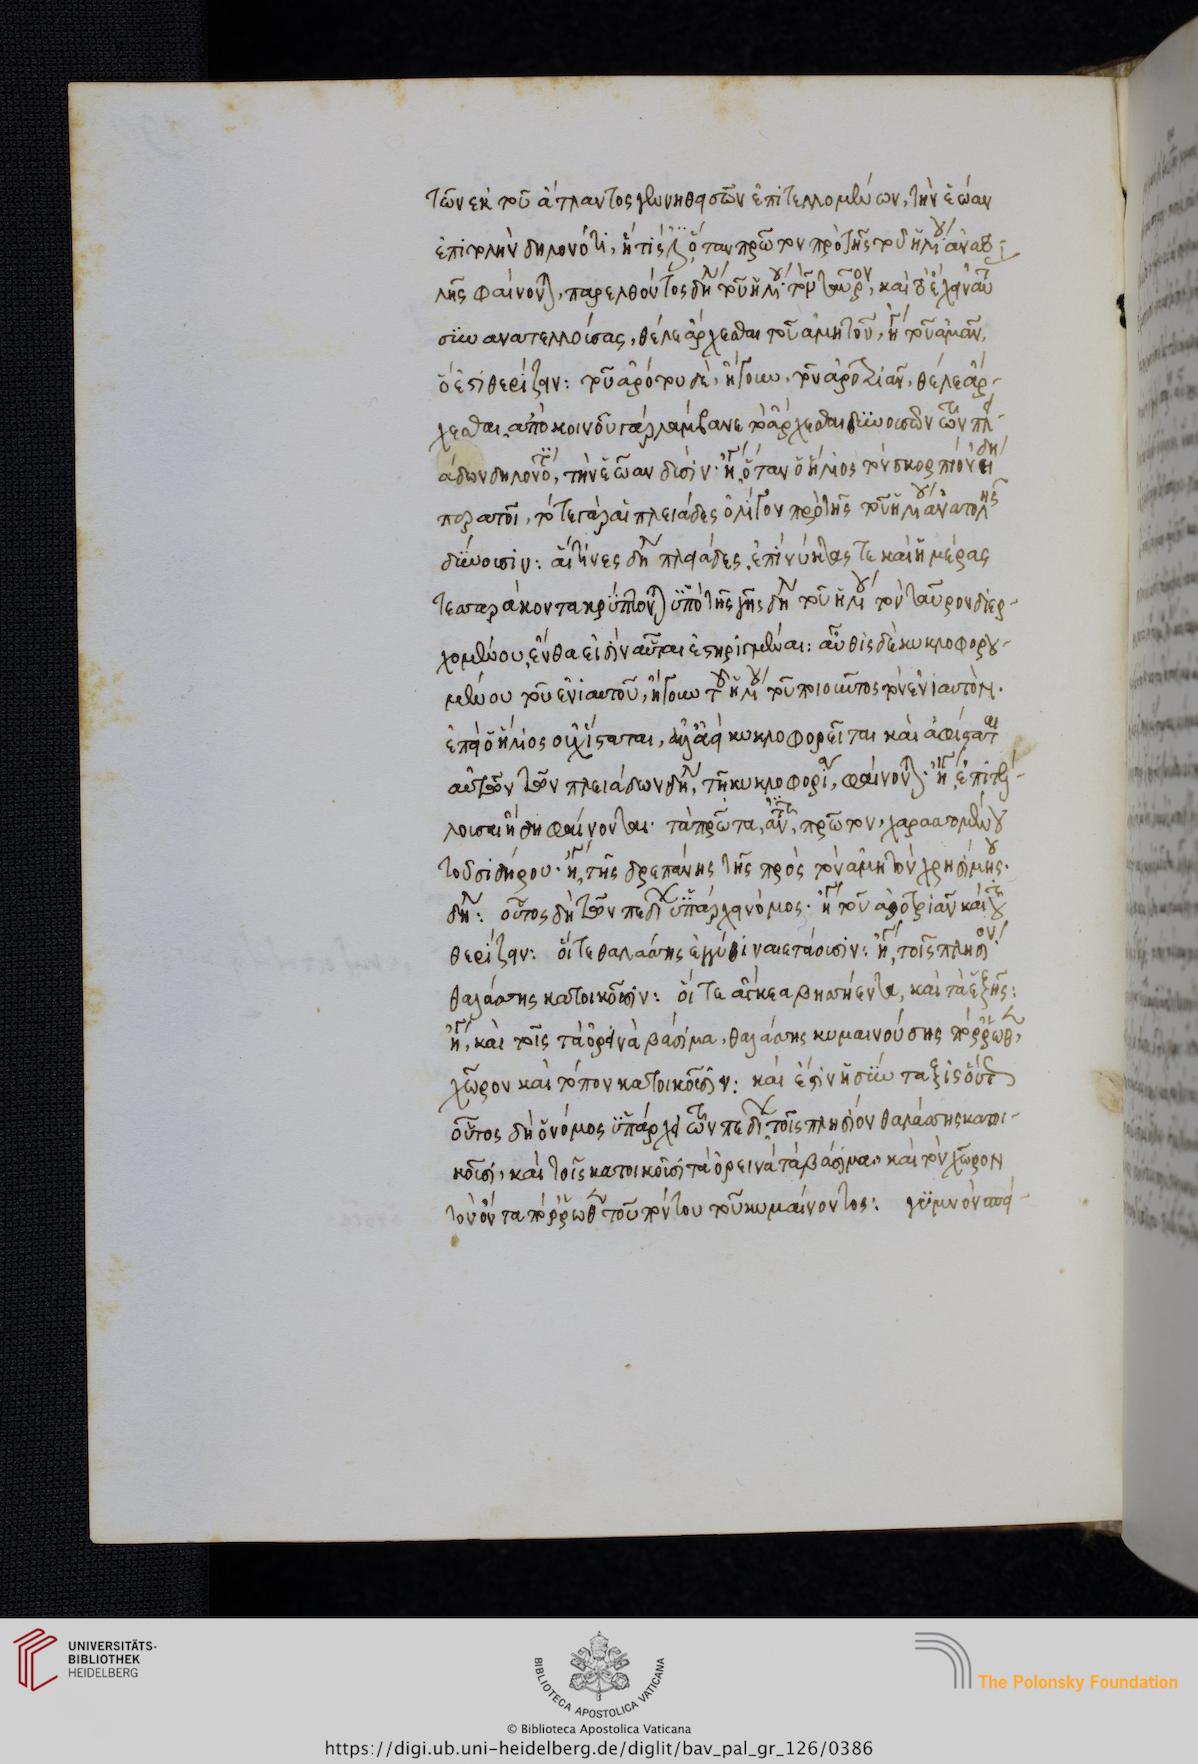 τῶν ἐκ τοῦ ἄτλαντος γεννηθεισῶν ἐπιτελλομένων, τὴν ἑώαν
ἐπιτολὴν δηλονότι, ἥτις ὅταν πρῶτον πρὸ τῆς τοῦ ἡλίου ἀνατο
λῆς φαίνονται, παρελθόντος δηλ τοῦ ἡλίου τὸν ταῦρον, καὶ
σὺν ἀνατελλούσας, θέλε ἄρχεσθαι τοῦ ἀμητοῦ, ἢ τοῦ ἀμᾶν,
ὅ ἐστι θερίζειν: τοῦ ἀρότου δὲ, ἤγουν, τοῦ ἀροτριᾶν, θέλε ἄρ-
χεσθαι, ἀπὸ κοινοῦ γὰρ λάμβανε τὸ ἄρχεσθαι δυνουσῶν τῶν πλει
άδων δηλονότι, τὴν ἑῶαν δύσιν· ἢ ὅταν ὁ ἥλιος τὸν σκορπίον
τότε γὰρ αἱ πλειάδες ὀλίγον πρὸ τῆς τοῦ ἡλίου ἀνατολῆς
δύνουσιν: αἵτινες δὴ πλειάδες, ἐπὶ νύκτας τε καὶ ἡμέρας
τεσσαράκοντα κρύπτονται ὑπὸ τῆς γῆς δηλ τοῦ ἡλίου τὸν ταῦρον διερ-
χομένου, ἔνθα εἰσὶν αὗται ἐστηριγμέναι: αὖθις δὲ κυκλοφορου-
μένου τοῦ ἐνιαυτοῦ, ἤγουν τοῦ ἡλίου τοῦ ποιοῦντος τὸν ἐνιαυτὸν.
ἐπεὶ ὁ ἥλιος οὐχ ἵσταται, ἀλλ' ἀεὶ κυκλοφορεῖται καὶ ἀφίσταται
αὐτῶν τῶν πλειάδων δηλ, τῇ κυκλοφορίᾳ, φαίνονται· ἢ, ἐπιτέλ-
λουσαι ἤδη φαίνονται· τὰ πρῶτα, ἀντὶ, πρῶτον, χαρασσομένου
τοῦ σιδήρου· ἢ, τῆς δρεπάνης τῆς πρὸς τὸν ἀμητὸν χρησίμης·
δηλ: οὗτος δὴ τῶν πεδίων ὑπάρχει νόμος· ἢ τοῦ ἀροτριᾶν καὶ τοῦ
θερίζειν: οἵ τε θαλάσσης ἐγγύθι ναιετάουσιν: ἢ, τοῖς πλησίον
θαλάσσης κατοικοῦσιν: οἵ τε ἄγκεα βησσήεντα, καὶ τὰ ἑξῆς:
ἢ, καὶ τοῖς τὰ ὀρεινὰ βάσιμα, θαλάσσης κυμαινούσης πόρρωθεν,
χῶρον καὶ τόπον κατοικοῦσιν: καὶ ἔστιν ἡ σύνταξις οὕτως
οὗτος δὴ ὁ νόμος ὑπάρχει τῶν πεδίων τοῖς πλησίον θαλάσσης κατοι-
κοῦσι, καὶ τοῖς κατοικοῦσι τὰ ὀρεινὰ τὰ βάσιμα, καὶ τὸν χῶρον
τὸν ὄντα πόρρωθεν τοῦ πόντου τοῦ κυμαίνοντος: γυμνὸν σπεί-
UNIVERSITÄTS-
BIBLIOTHEK
HEIDELBERG
BIBLIOTECA APOSTOLICA VATICANA
The Polonsky Foundation
© Biblioteca Apostolica Vaticana
https://digi.ub.uni-heidelberg.de/diglit/bav_pal_gr_126/0386